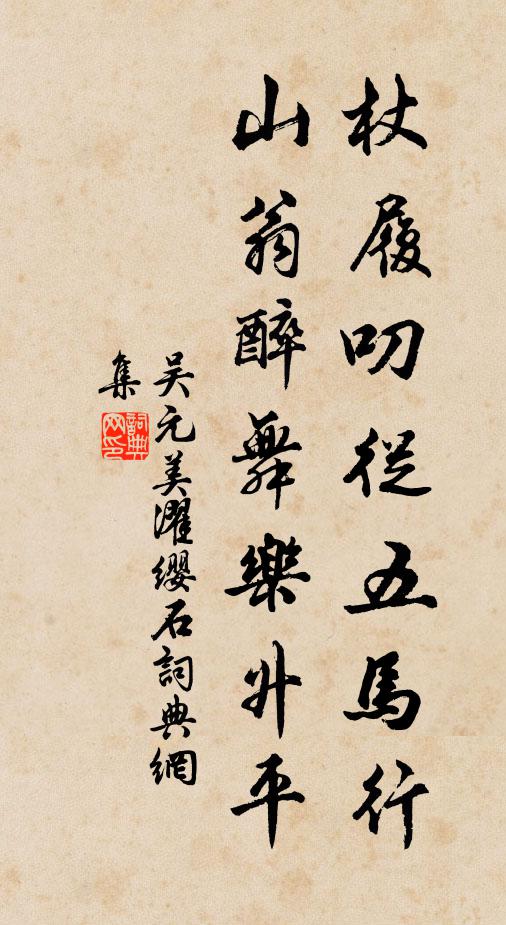 杖履叨從五馬行
山翁醉舞樂升平
吴元美濯纓石詞典網
集
詞典網印